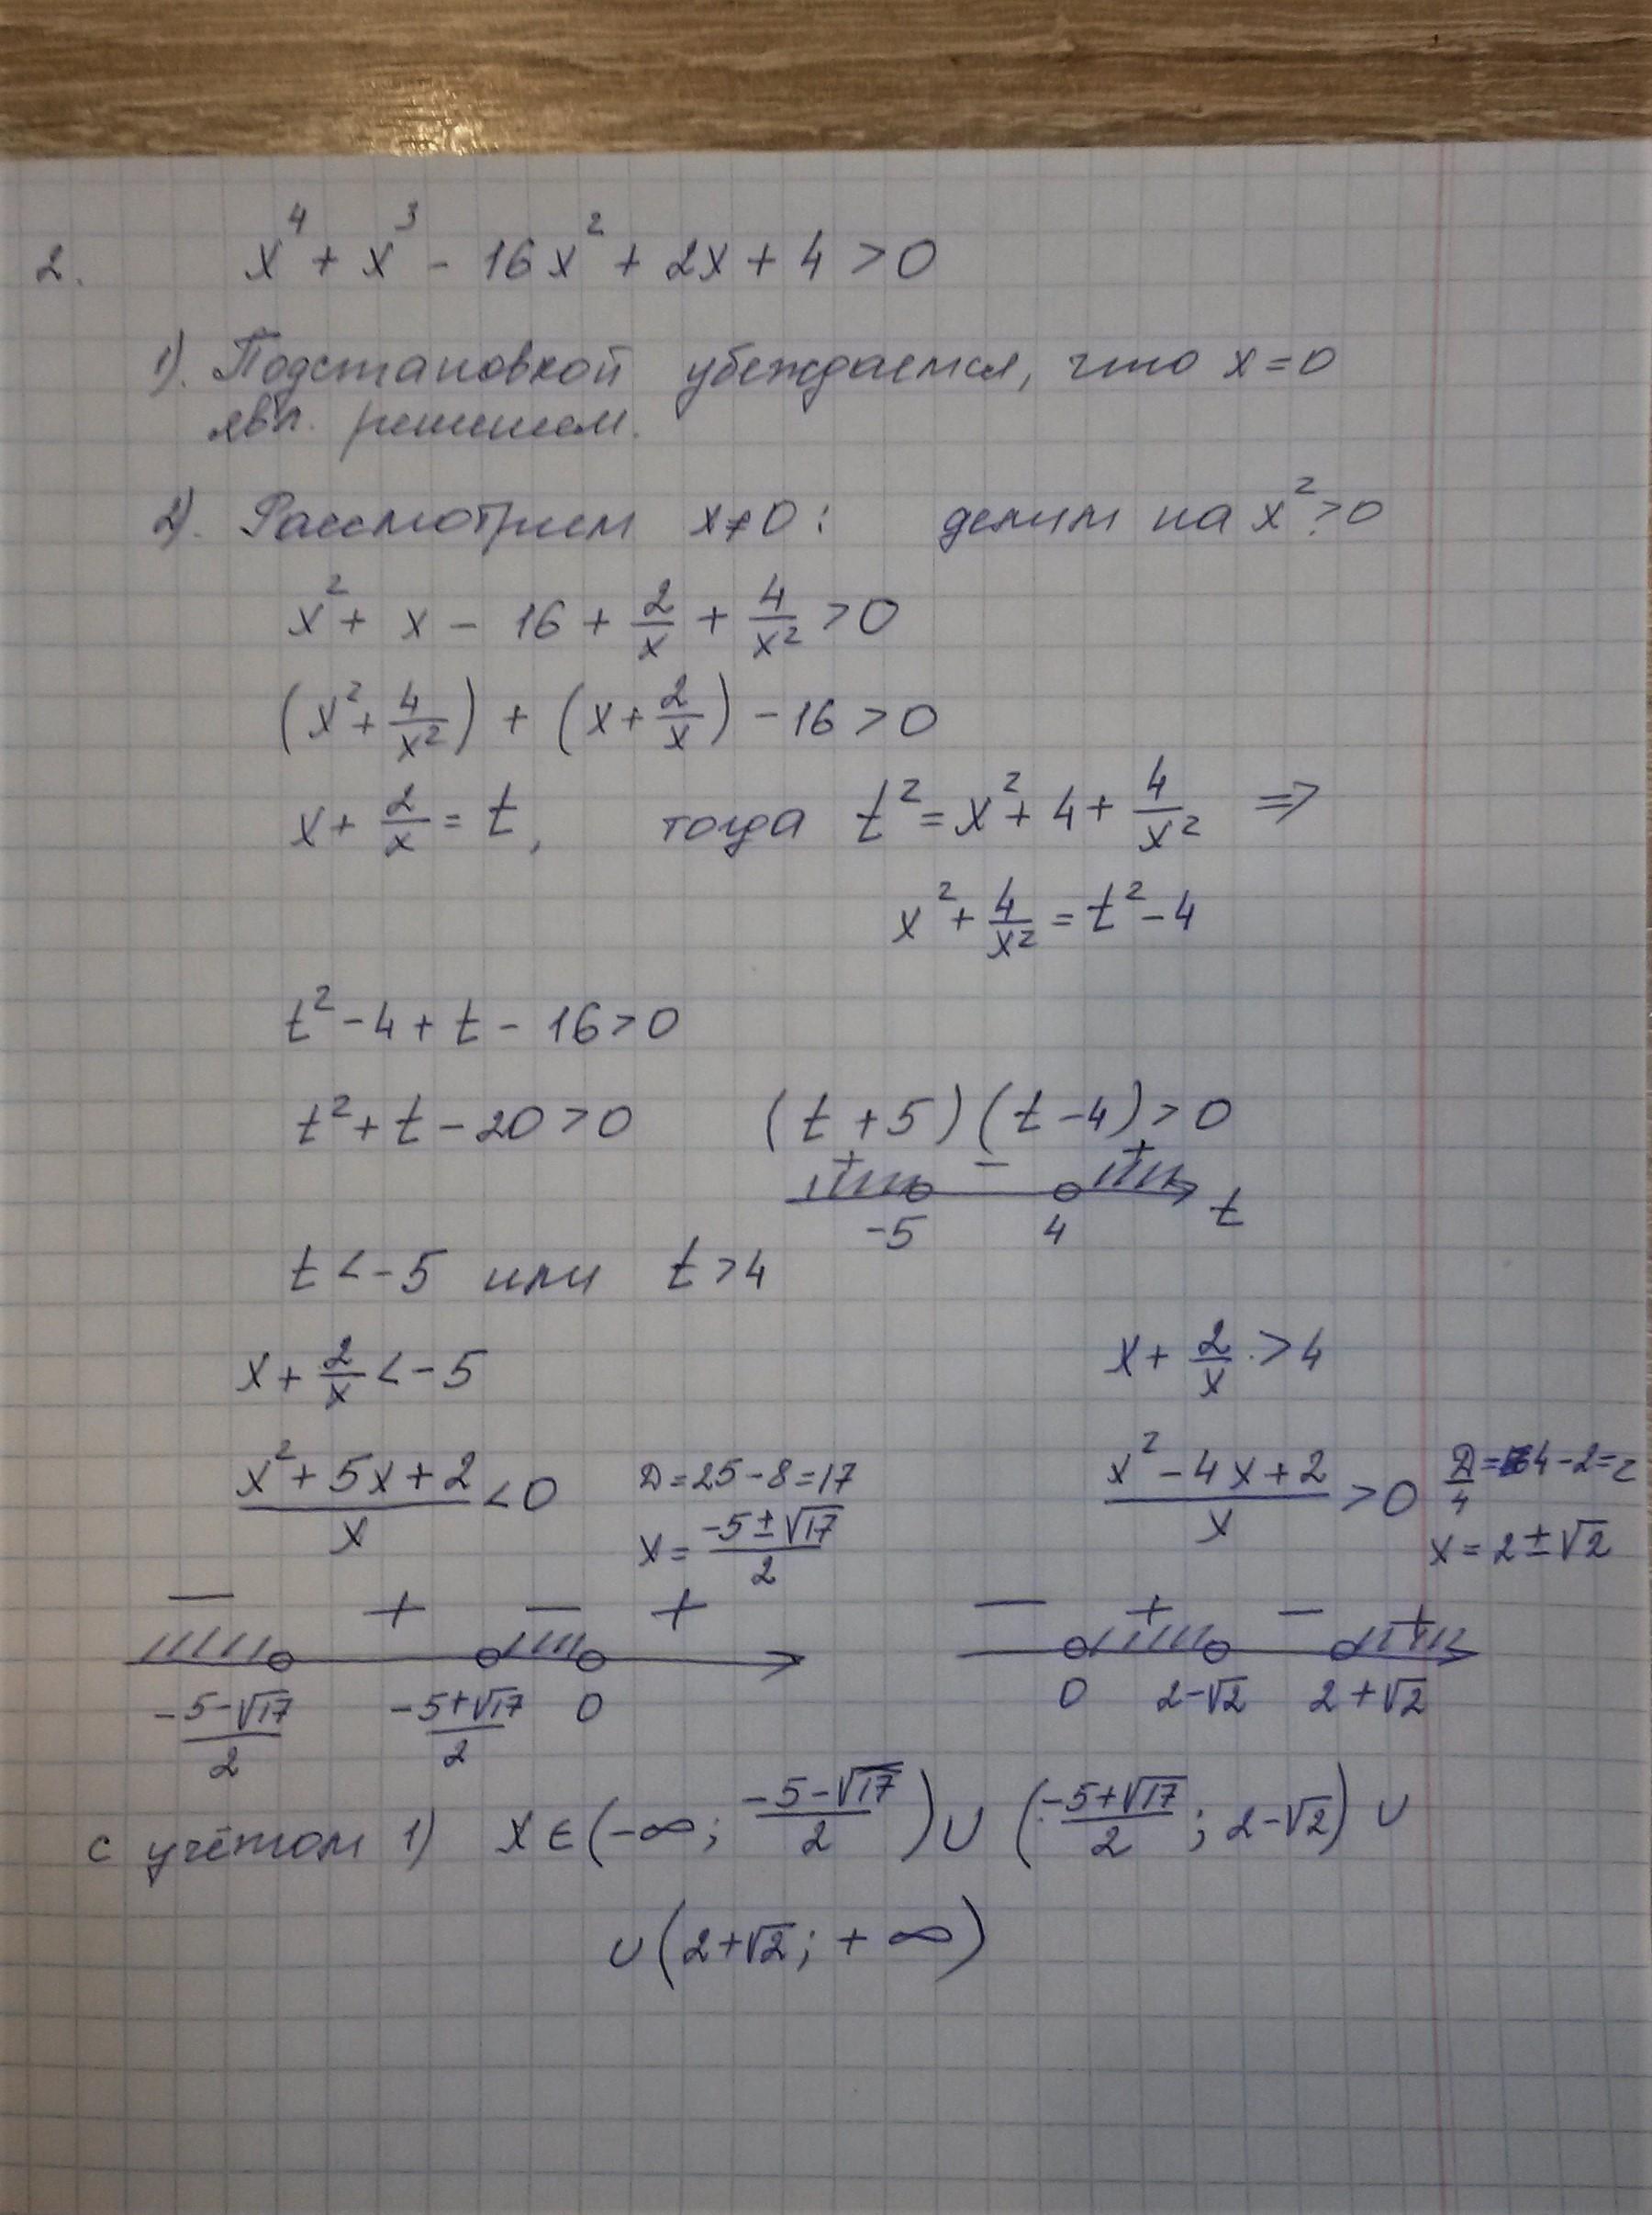 2. x⁴ + x³ - 16x² + 2x + 4 > 0
1). Подстановкой убеждаемся, что x = 0
явл. решением.
2). Рассмотрим x ≠ 0 : делим на x² > 0
x² + x - 16 + 2/x + 4/x² > 0
(x² + 4/x²) + (x + 2/x) - 16 > 0
x + 2/x = t, тогда t² = x² + 4 + 4/x² ⇒
x² + 4/x² = t² - 4
t² - 4 + t - 16 > 0
t² + t - 20 > 0 (t + 5)(t - 4) > 0
+ - +
-5 4 t
t < -5 или t > 4
x + 2/x < -5 x + 2/x > 4
(x² + 5x + 2)/x < 0 D = 25 - 8 = 17 (x² - 4x + 2)/x > 0 D/4 = 4 - 2 = 2
x = (-5 ± √17)/2 x = 2 ± √2
- + - + - + - +
(-5-√17)/2 (-5+√17)/2 0 0 2-√2 2+√2
с учётом 1) x ∈ (-∞; (-5-√17)/2) ∪ ((-5+√17)/2; 2-√2) ∪
∪ (2+√2; +∞)